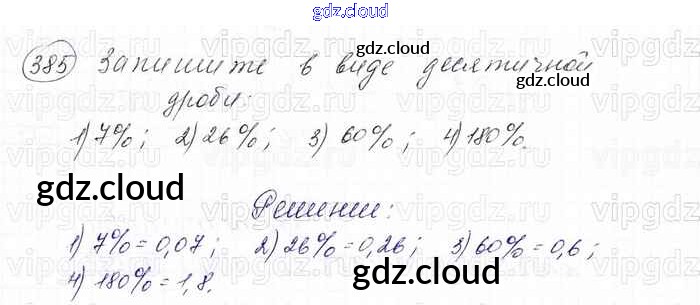 gdz.cloud
385 Запишите в виде десятичной
gdz.cloud
дроби:
1) 7%; 2) 26%; 3) 60%; 4) 180%.
gdz.cloud
gdz.cloud
Решение:
1) 7% = 0,07; 2) 26% = 0,26; 3) 60% = 0,6;
4) 180% = 1,8.
gdz.cloud